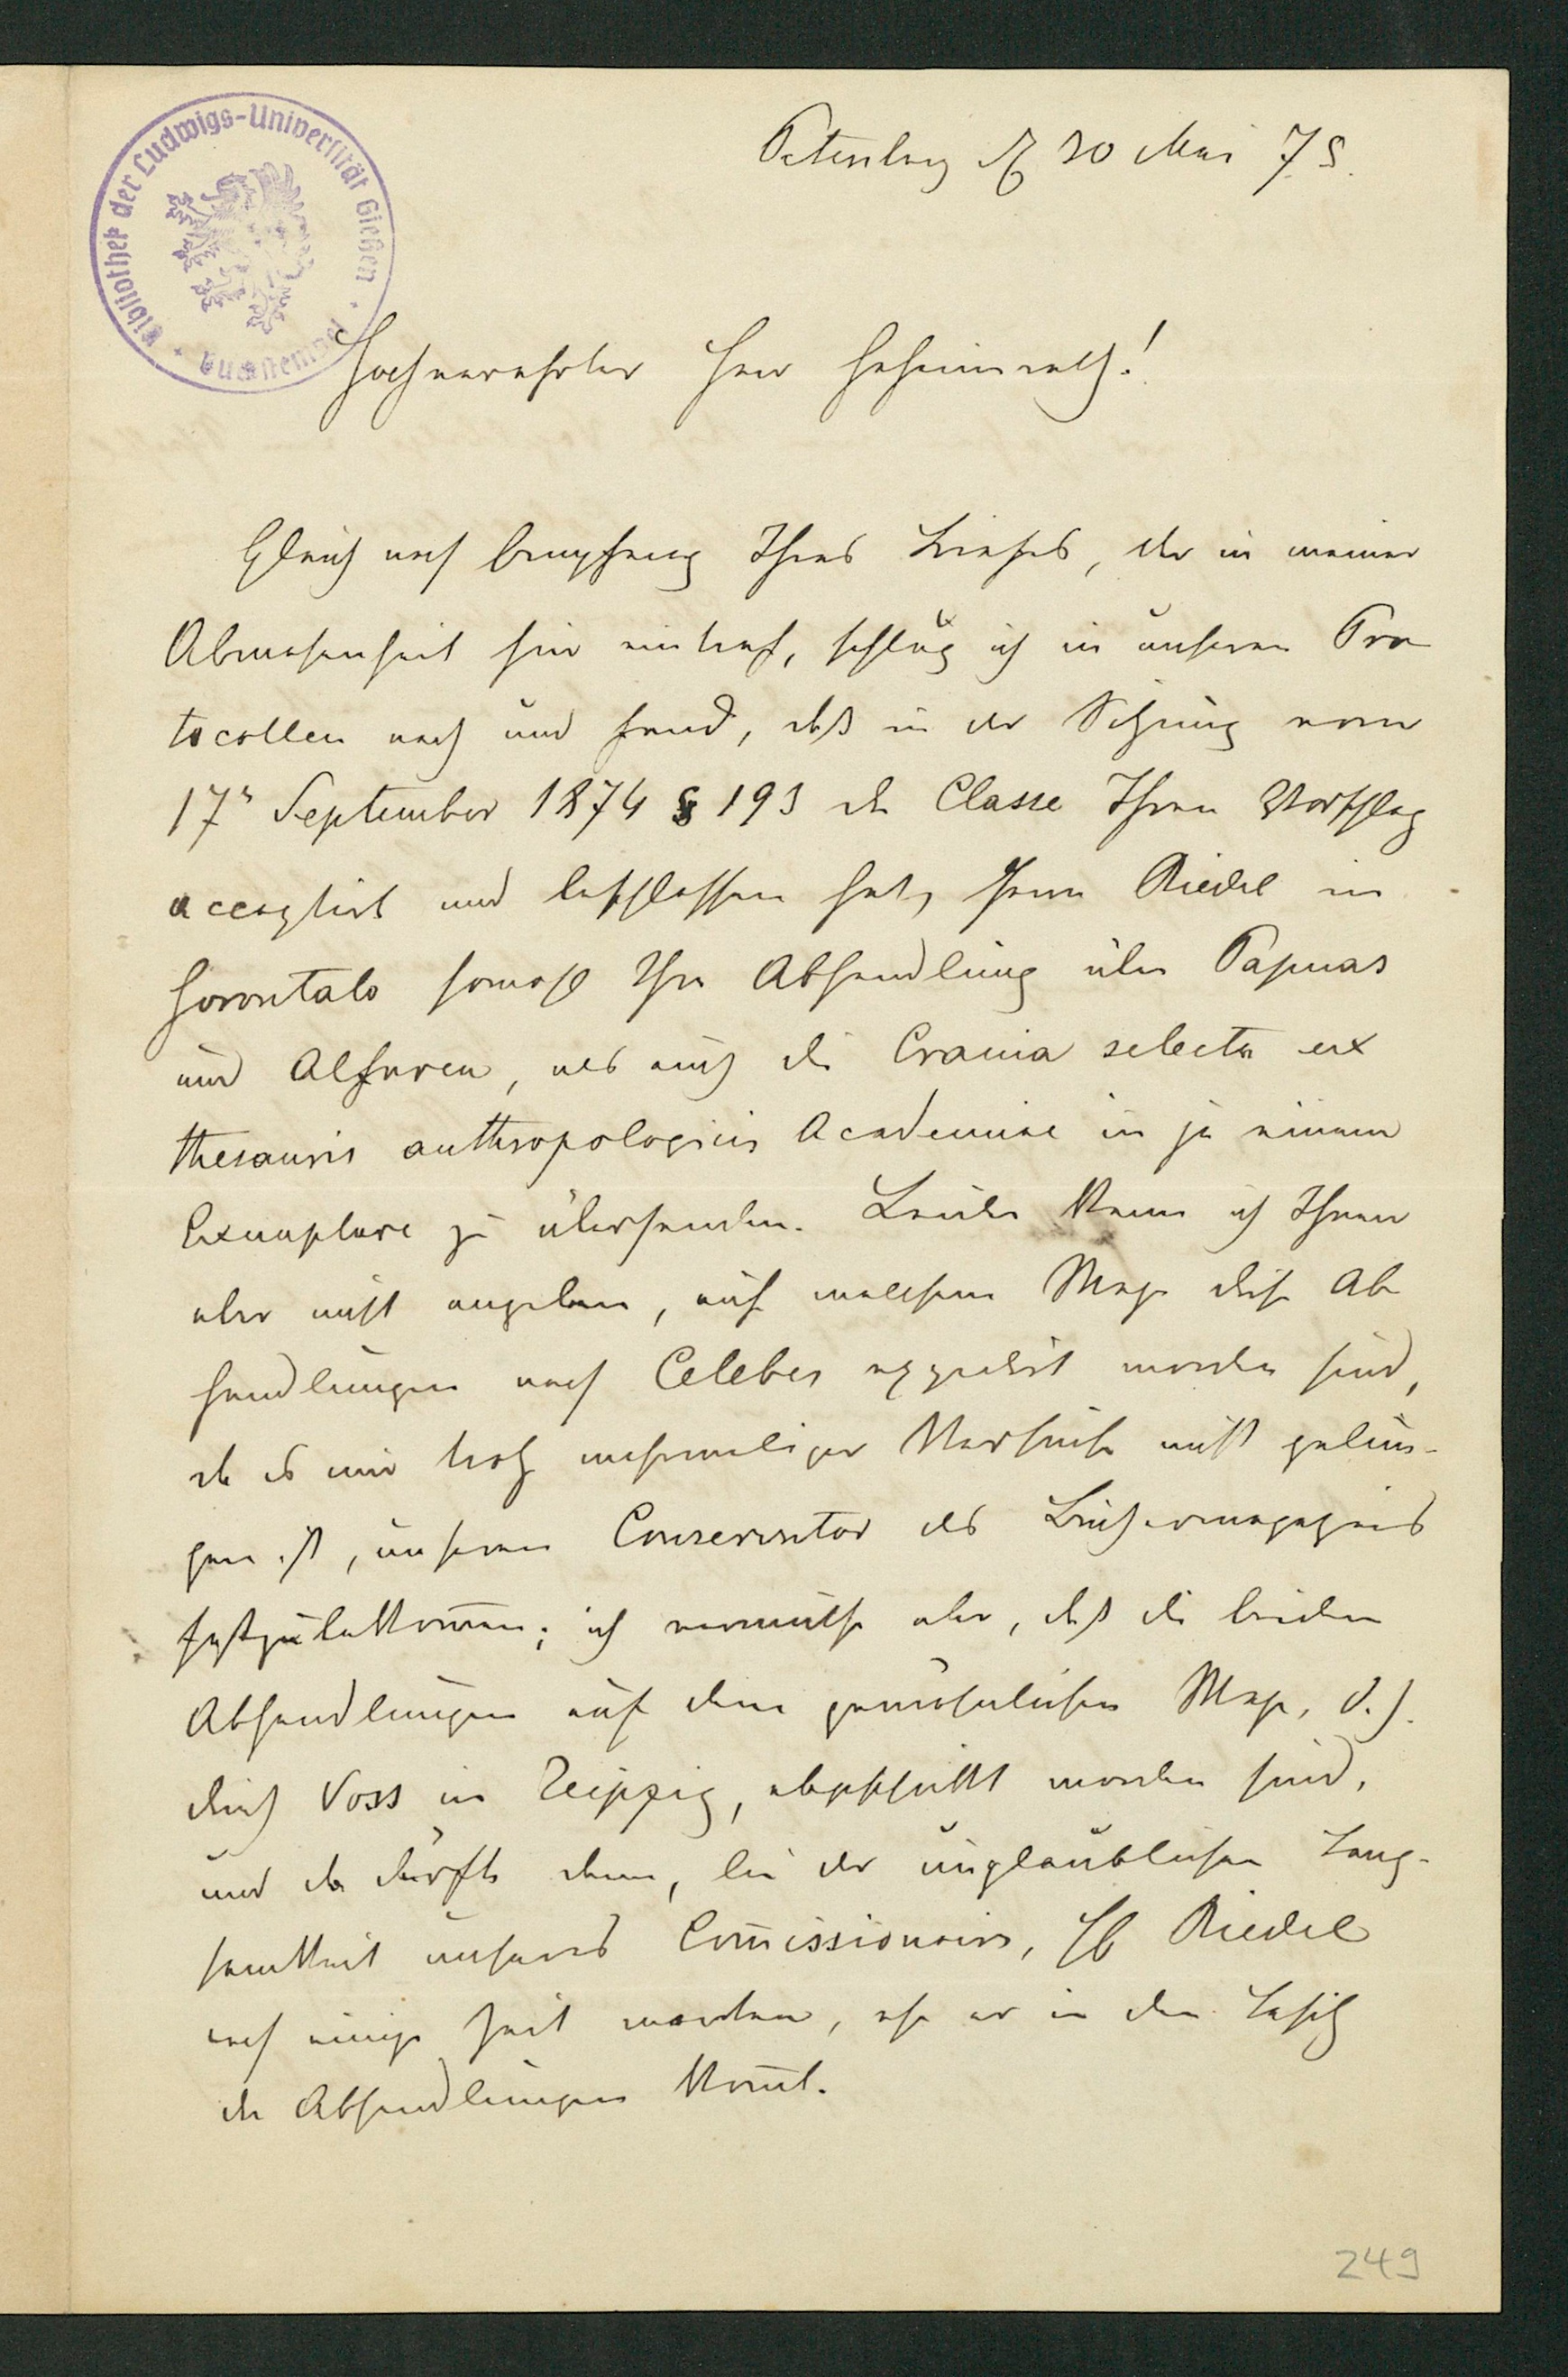 Bibliothek der Ludwigs-Universität Gießen
Petersburg d. 30 Mai 75.
Hochverehrter Herr Geheimrath!
Gleich nach Empfang Ihres Briefes, der in meiner
Abwesenheit hier eintraf, schlug ich in unseren Pro
tocollen nach und fand, daß in der Sitzung vom
17n September 1874 § 193 die Classe Ihren Vorschlag
acceptirt und beschlossen hat, Herrn Riedel in
Gorontalo sowohl Ihre Abhandlung über Papuas
und Alfuren, als auch die Crania selecta ex
thesauris anthropologicis Academiae in je einem
Exemplare zu übersenden. Leider kann ich Ihnen
aber nicht angeben, auf welchem Wege diese Ab
handlungen nach Celebes expedirt worden sind,
da es mir trotz mehrmaliger Versuche nicht gelun-
gen ist, unseren Conservator des Büchermagazins
festzubekommen; ich vermuthe aber, daß die beiden
Abhandlungen auf dem gewöhnlichen Wege, d. h.
durch Voss in Leipzig, abgeschickt worden sind,
und da dürfte denn, bei der unglaublichen Lang-
samkeit unseres Commissionairs, H Riedel
noch einige Zeit warten, ehe er in den Besitz
der Abhandlungen kommt.
249